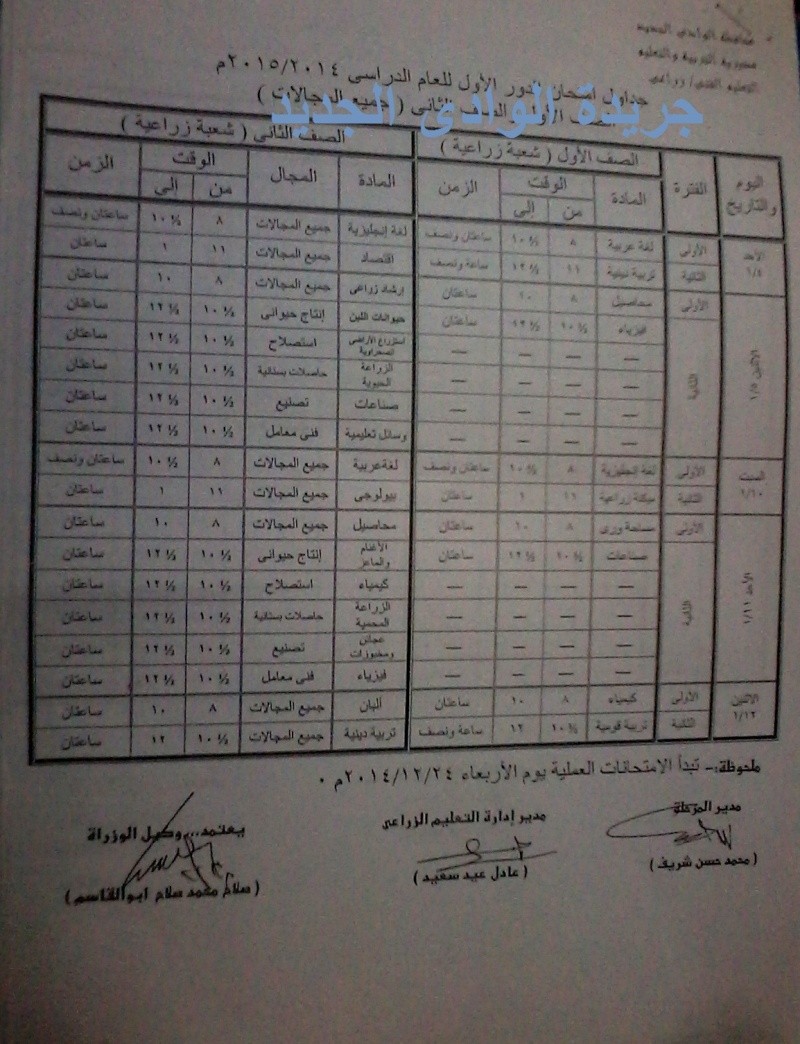 محافظة الوادي الجديد
مديرية التربية والتعليم
التعليم الفني / زراعي
جداول امتحان الدور الأول للعام الدراسى ٢٠١٥/٢٠١٤م
الصف الأول والصف الثانى ( جميع المجالات )
جريدة الوادى الجديد
اليوم والتاريخ الفترة الصف الأول ( شعبة زراعية ) الصف الثانى ( شعبة زراعية )
المادة الوقت الزمن المادة المجال الوقت الزمن
من إلى من إلى
الأحد ١/٤ الأولى لغة عربية ٨ ١٠ ½ ساعتان ونصف لغة إنجليزية جميع المجالات ٨ ١٠ ½ ساعتان ونصف
الثانية تربية دينية ١١ ١٢ ½ ساعة ونصف اقتصاد جميع المجالات ١١ ١ ساعتان
الاثنين ١/٥ الأولى محاصيل ٨ ١٠ ساعتان إرشاد زراعى جميع المجالات ٨ ١٠ ساعتان
الثانية فيزياء ١٠ ½ ١٢ ½ ساعتان حيوانات اللبن إنتاج حيوانى ١٠ ½ ١٢ ½ ساعتان
— — — — استزراع الأراضى الصحراوية استصلاح ١٠ ½ ١٢ ½ ساعتان
— — — — الزراعة الحيوية حاصلات بستانية ١٠ ½ ١٢ ½ ساعتان
— — — — صناعات تصنيع ١٠ ½ ١٢ ½ ساعتان
— — — — وسائل تعليمية فنى معامل ١٠ ½ ١٢ ½ ساعتان
السبت ١/١٠ الأولى لغة إنجليزية ٨ ١٠ ½ ساعتان ونصف لغة عربية جميع المجالات ٨ ١٠ ½ ساعتان ونصف
الثانية ميكنة زراعية ١١ ١ ساعتان بيولوجى جميع المجالات ١١ ١ ساعتان
الأحد ١/١١ الأولى مساحة ورى ٨ ١٠ ساعتان محاصيل جميع المجالات ٨ ١٠ ساعتان
الثانية صناعات ١٠ ½ ١٢ ½ ساعتان الأغنام والماعز إنتاج حيوانى ١٠ ½ ١٢ ½ ساعتان
— — — — كيمياء استصلاح ١٠ ½ ١٢ ½ ساعتان
— — — — الزراعة المحمية حاصلات بستانية ١٠ ½ ١٢ ½ ساعتان
— — — — عجائن ومخبوزات تصنيع ١٠ ½ ١٢ ½ ساعتان
— — — — فيزياء فنى معامل ١٠ ½ ١٢ ½ ساعتان
الاثنين ١/١٢ الأولى كيمياء ٨ ١٠ ساعتان ألبان جميع المجالات ٨ ١٠ ساعتان
الثانية تربية قومية ١٠ ½ ١٢ ساعة ونصف تربية دينية جميع المجالات ١٠ ½ ١٢ ساعتان
ملحوظة:- تبدأ الامتحانات العملية يوم الأربعاء ٢٠١٤/١٢/٢٤م .
مدير المرحلة مدير إدارة التعليم الزراعي يعتمد،،، وكيل الوزراة
( محمد حسن شريف ) ( عادل عيد سعيد ) ( سلام محمد سلام ابوالقاسم )